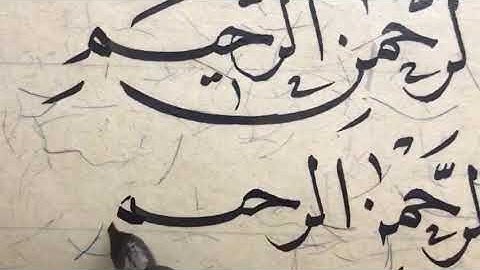 لرَحْمٰنِ الرَحِيمِ
لرَّحْمٰن الرحىم